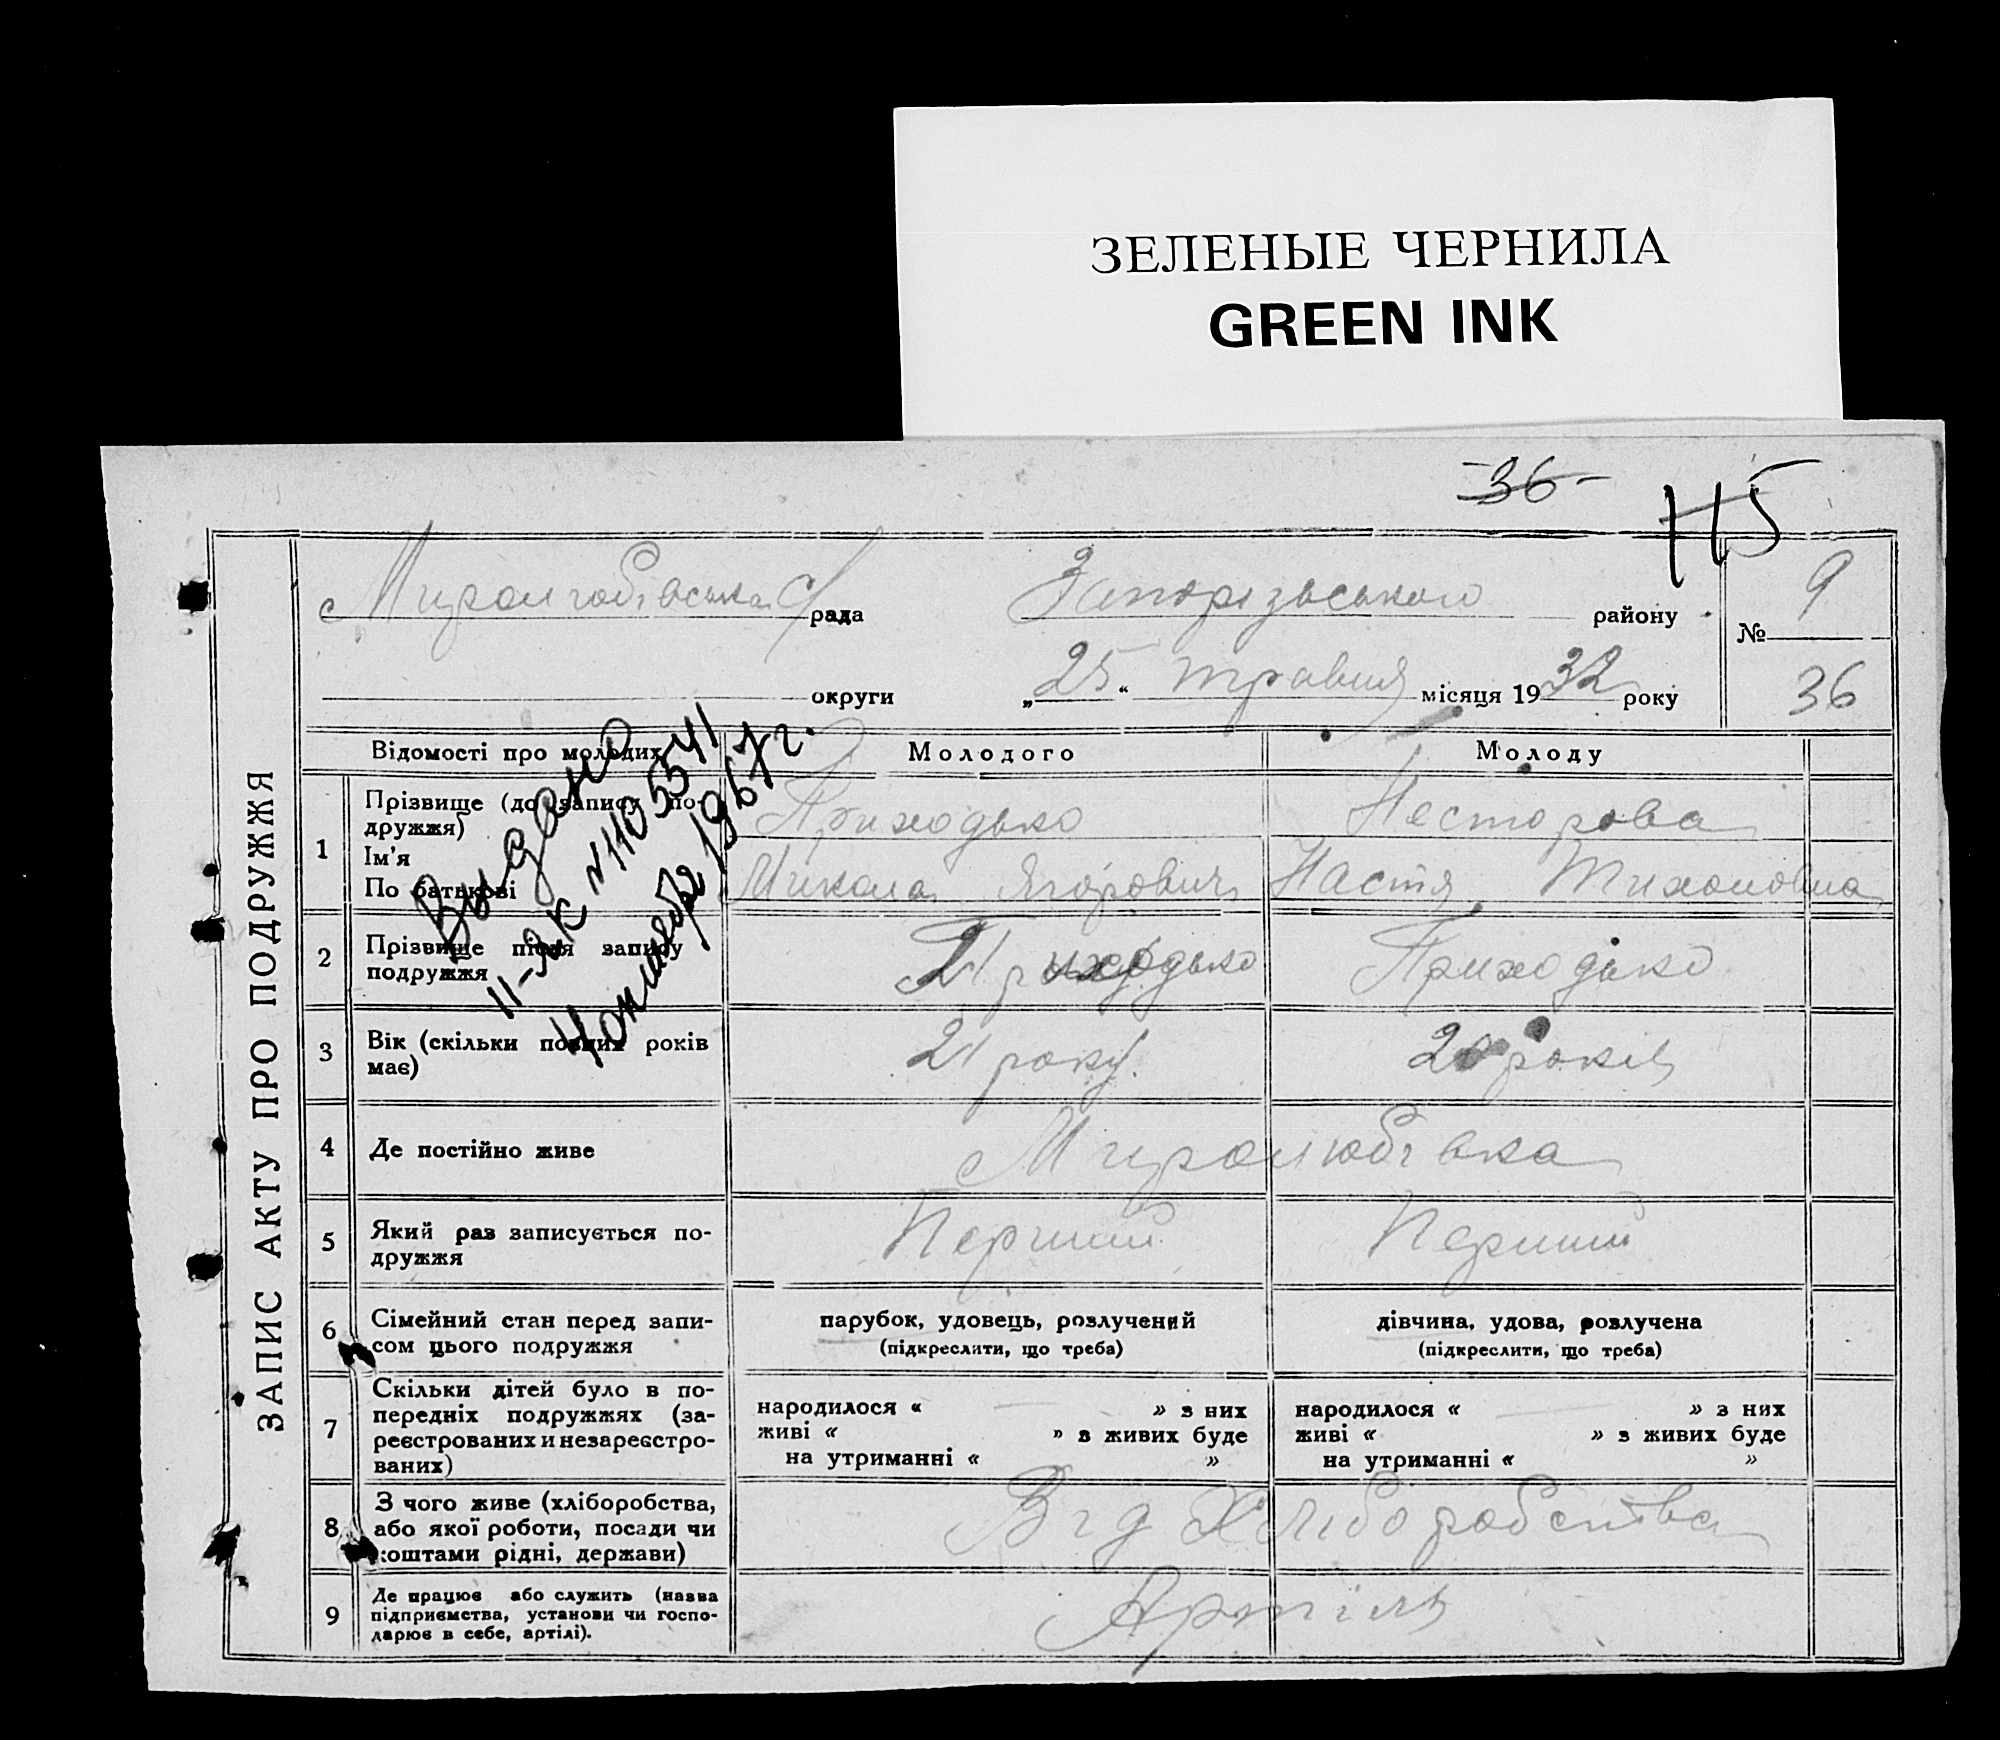 ЗЕЛЕНЫЕ ЧЕРНИЛА
GREEN INK
-36-
115
Миролюбівська с/рада Запорізьського району № 9
округи „25“ травня місяця 1932 року 36
ЗАПИС АКТУ ПРО ПОДРУЖЖЯ
Видано
II-ЯК №1105541
1967 г.
Відомості про молодих Молодого Молоду
1 Прізвище (до запису подружжя) Приходько Несторова
Ім'я
По батькові Микола Ягорович Настя Тихоновна
2 Прізвище після запису Приходько Приходько
подружжя
3 Вік (скільки повних років 21 року 20 років
має)
4 Де постійно живе Миролюбівка
5 Який раз записується по- Перший Перший
дружжя
6 Сімейний стан перед запи- парубок, удовець, розлучений дівчина, удова, розлучена
сом цього подружжя (підкреслити, що треба) (підкреслити, що треба)
7 Скільки дітей було в по-
передніх подружжях (за- народилося « — » з них народилося « — » з них
реєстрованих и незареєстро- живі « » з живих буде живі « » з живих буде
ваних) на утриманні « » на утриманні « »
8 З чого живе (хліборобства, Від Хліборобства
або якої роботи, посади чи
коштами рідні, держави)
9 Де працює або служить (назва Артіль
підприємства, установи чи госпо-
дарює в себе, артілі).